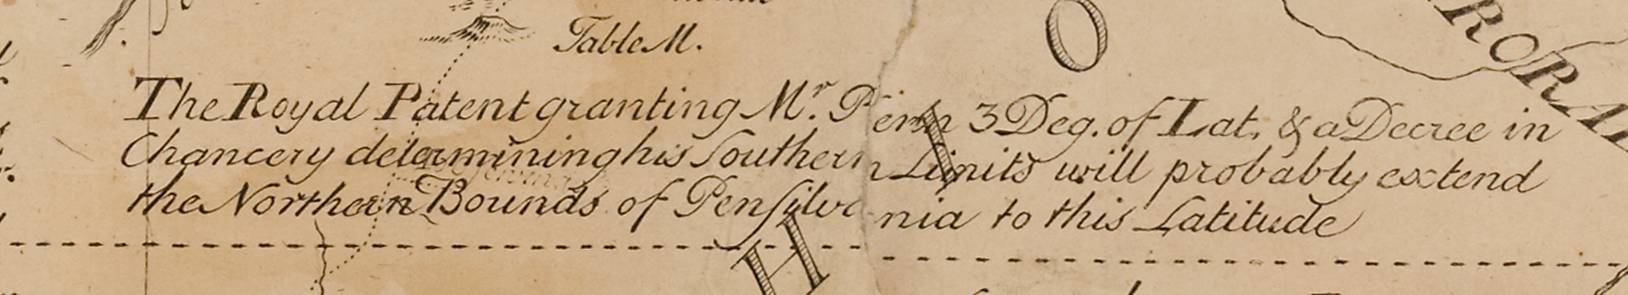 Table M.
O
RORA
The Royal Patent granting Mr. Penn 3 Deg. of Lat. & a Decree in
Chancery determining his Southern Limits will probably extend
the Northern Bounds of Penſilvania to this Latitude
H